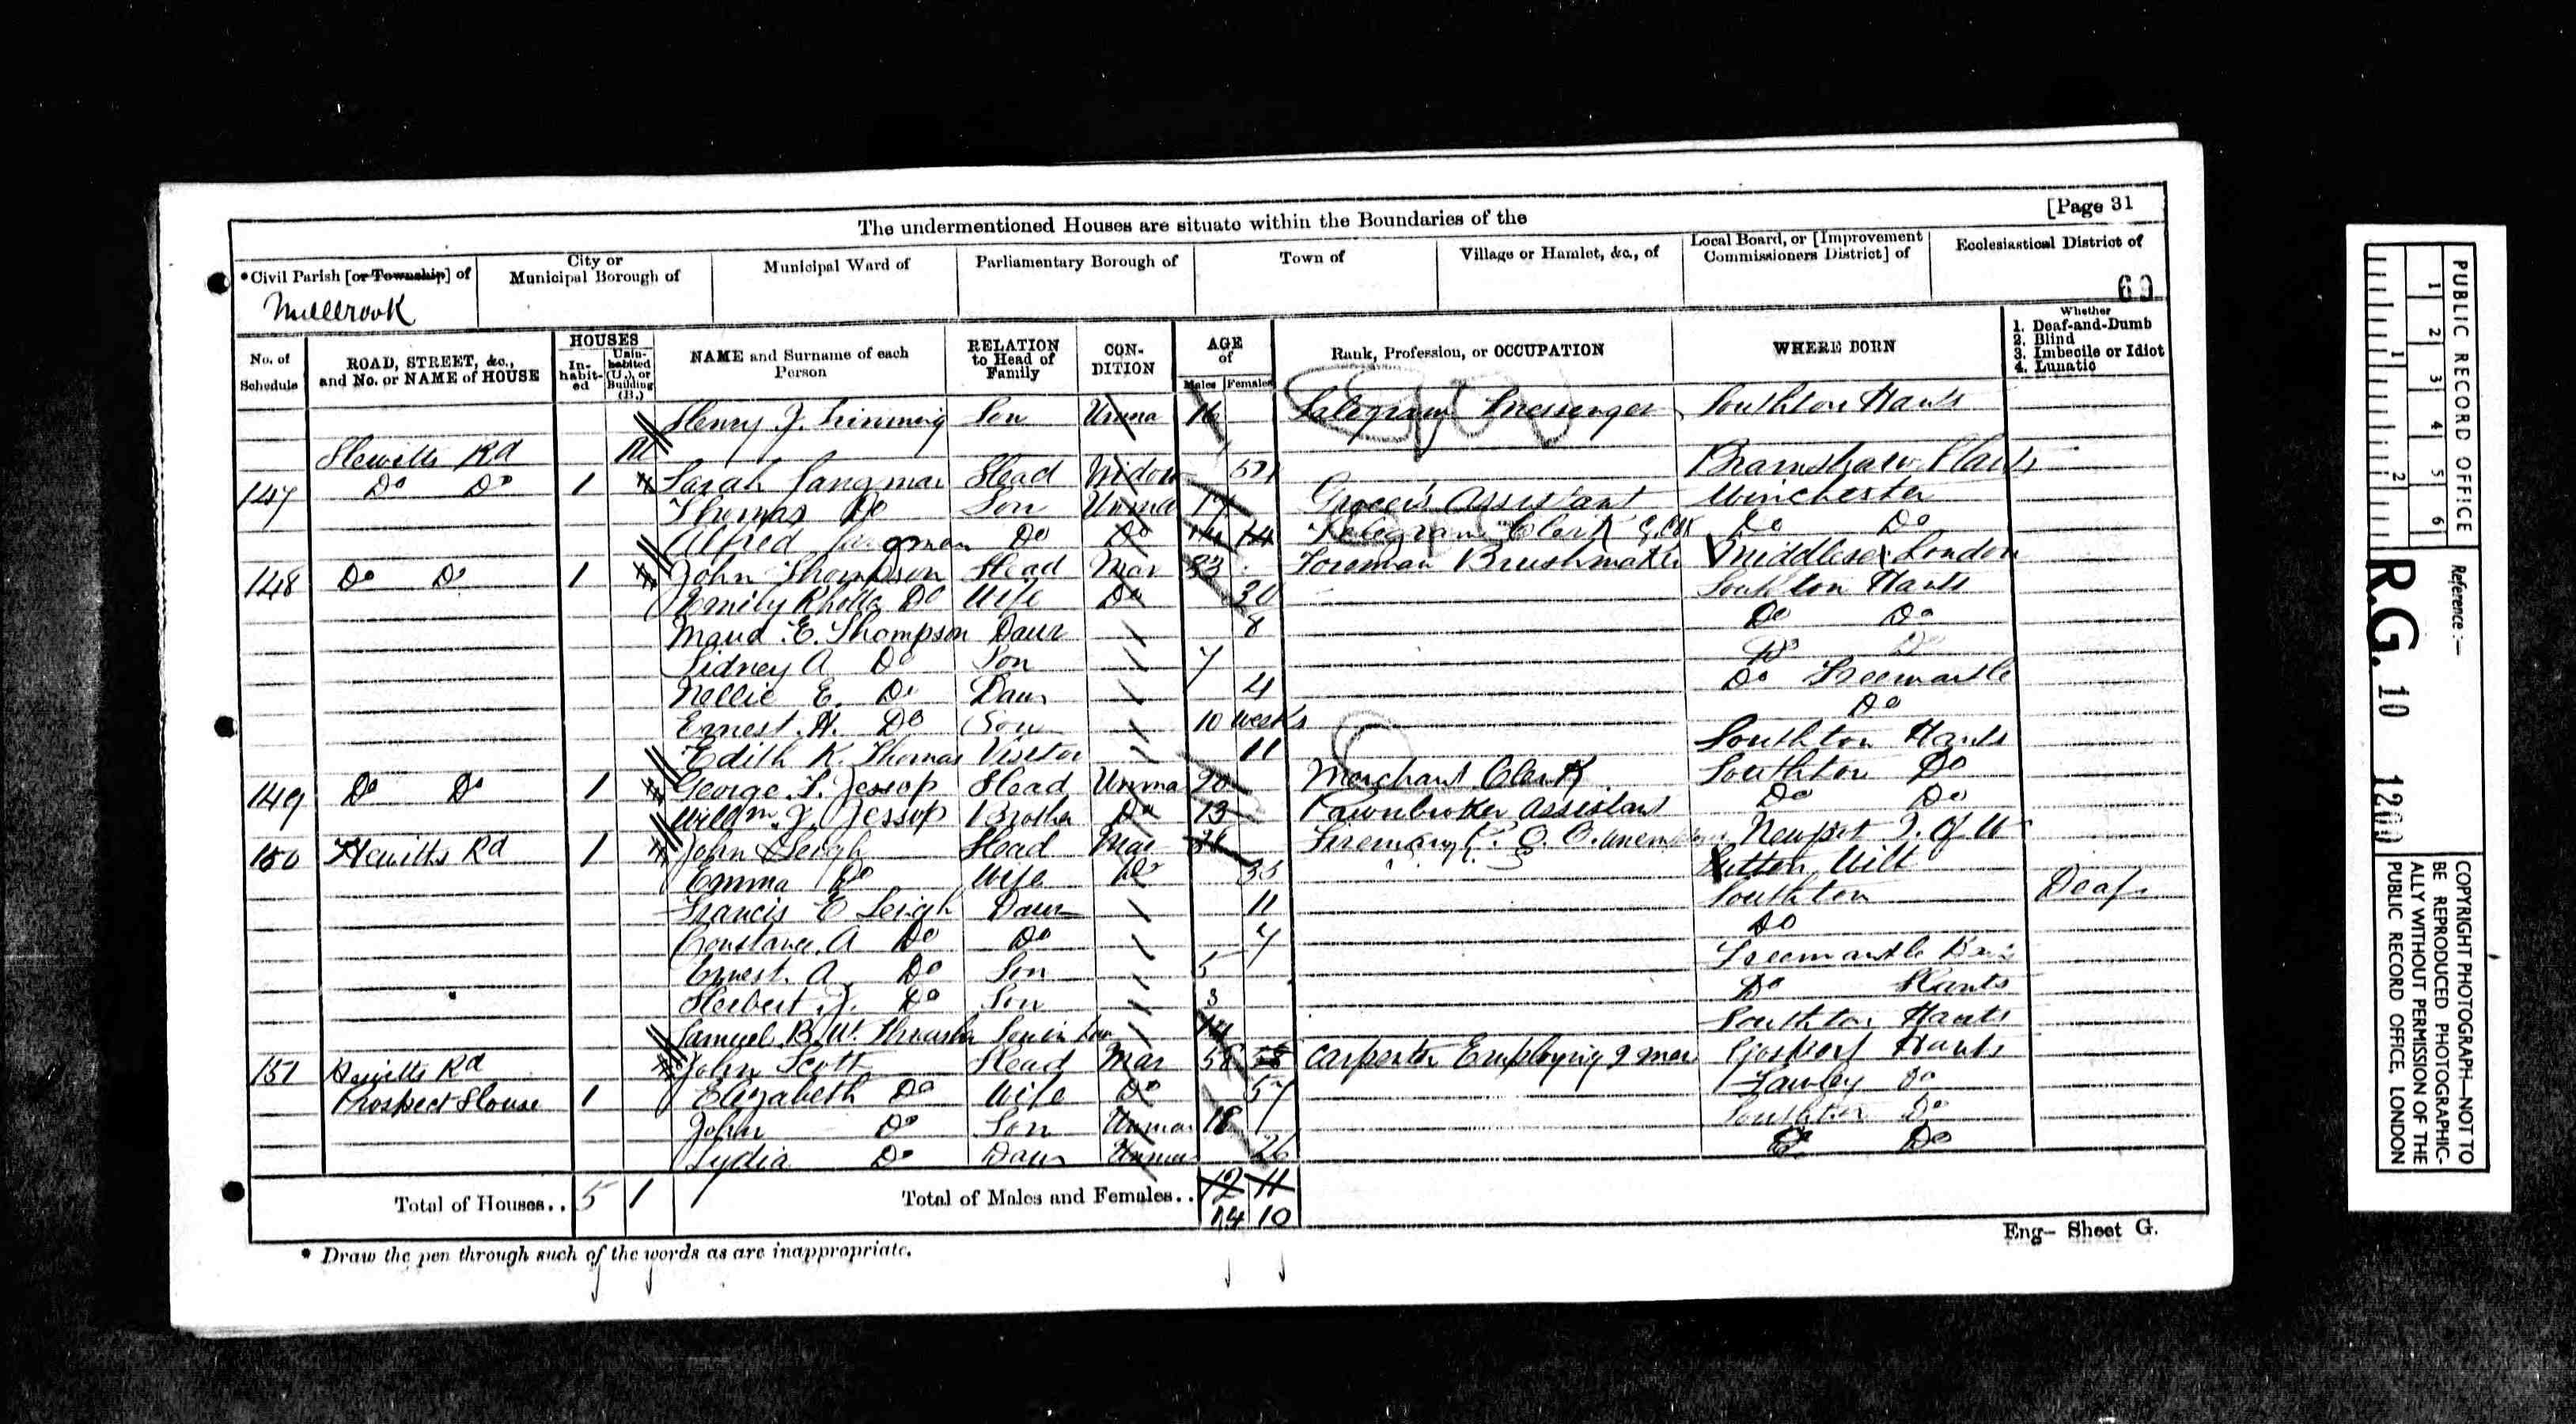 The undermentioned Houses are situate within the Boundaries of the
[Page 31
*Civil Parish [or Township] of
City or Municipal Borough of
Municipal Ward of
Parliamentary Borough of
Town of
Village or Hamlet, &c., of
Local Board, or [Improvement Commissioners District] of
Ecclesiastical District of
Millbrook
60
No. of Schedule
ROAD, STREET, &c., and No. or NAME of HOUSE
HOUSES
In-habit-ed
Unin-habited (U.), or Building (B.)
NAME and Surname of each Person
RELATION to Head of Family
CON-DITION
AGE of
Males
Females
Rank, Profession, or OCCUPATION
WHERE BORN
Whether
1. Deaf-and-Dumb
2. Blind
3. Imbecile or Idiot
4. Lunatic
Henry J. Son Unma 16 Telegram Messenger Southton Hants
Hewitts Rd 1U
147 Do Do 1 Sarah Langman Head Widow Bramshaw Hants
Thomas Do Son Unma 17 Grocers Assistant Winchester
Alfred Langman Do Do 14 14 Telegram Clerk Do Do
148 Do Do 1 John Thompson Head Mar 33 Foreman Brushmaker Middlesex London
Emily Do Wife Do 30 Southton Hants
Maud E. Thompson Daur 8 Do Do
Sidney A Do Son 7 Do Do
Nellie E. Do Daur 4 Do Freemantle
Ernest. H. Do Son 10 weeks Do
Edith K. Thomas Visitor 11 Southton Hants
149 Do Do 1 George F. Jessop Head Unma 20 Merchant Clerk Southton Do
Willm. J. Jessop Brother Do 13 Pawnbroker Assistant Do Do
150 Hewitts Rd 1 John Leigh Head Mar Fireman Newport I. of W
Emma Do Wife Do 35 Wilt
Francis E Leigh Daur 11 Southton Deaf
Constance. A Do Do 7 Do
Ernest. A Do Son 5 Freemantle
Herbert. J. Do Son 3 Do Hants
Samuel B. W. Thrasher Son in Law 14 Southton Hants
151 Hewitts Rd John Scott Head Mar 58 58 Carpenter Employing 9 men Gosport Hants
Prospect House 1 Elizabeth Do Wife Do 57 Fawley Do
John Do Son Unmar 18 Southton Do
Lydia Do Daur Unmar 26 Do Do
Total of Houses.. 5 1 Total of Males and Females.. 12 11
14 10
Eng- Sheet G.
* Draw the pen through such of the words as are inappropriate.
PUBLIC RECORD OFFICE
1 2 3 4 5 6
1 2
Reference:—
R.G. 10 1200
COPYRIGHT PHOTOGRAPH—NOT TO
BE REPRODUCED PHOTOGRAPHIC-
ALLY WITHOUT PERMISSION OF THE
PUBLIC RECORD OFFICE, LONDON